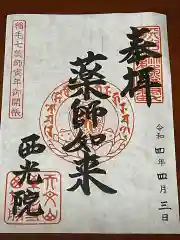 奉拝
令和四年四月三日
薬師如来
西光院
稲毛七薬師寅年御開帳